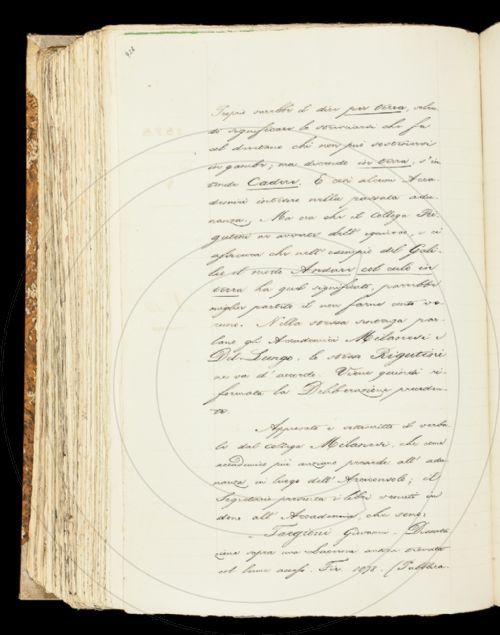 Troppo sarebbe il dire per terra, volen-
do significare lo strusciarsi che fa
col diretano chi non può sostenersi
in gambe; ma dicendo in terra, s'in-
tende Cadere. E così alcuni Acca-
demici intesero nella passata adu-
nanza. Ma ora che il collega Ri-
gutini ci avverte dell' equivoco, e ci
assicura che nell' esempio del Gali-
leo il modo Andare col culo in
terra ha quel significato, parrebbe
miglior partito il non farne conto ve-
runo. Nella stessa sentenza par-
lano gli Accademici Milanesi e
Del-Lungo, lo stesso Rigutini
ne va d' accordo. Viene quindi ri-
formata la Deliberazione preceden-
te.
Approvato e sottoscritto il verba-
le dal collega Milanesi, che come
accademico più anziano presiede all' adu-
nanza in luogo dell' Arciconsolo; il
Segretario presenta i libri venuti in
dono all' Accademia, che sono:
Targioni Giovanni - Disserta-
zione sopra una Lucerna antica trovata
col lume acceso. Fir. 1878. (Pubblica-